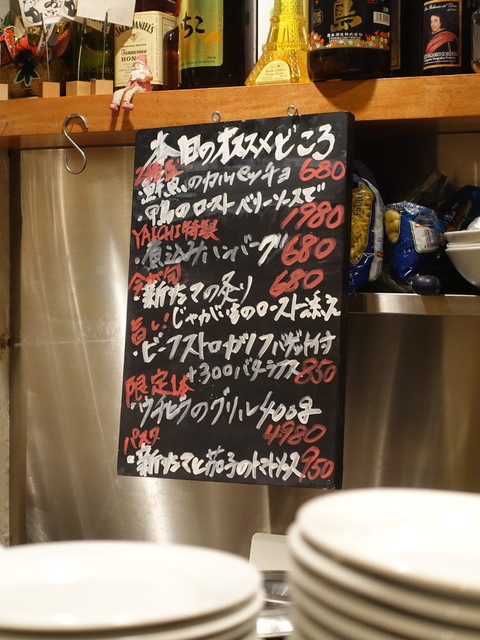 JACK DANIEL'S
Tennessee
HONEY
本日のオススメどころ
・鮮魚のカルパッチョ 680
・鴨のローストベリーソースで
1980
YAICHI特製
・煮込みハンバーグ
680
今が旬
680
・新たての炙り
じゃがいものロースト添え
旨い!
・ビーフストロガノフバゲット付
+300バターライス 850
限定1本
・ウチヒラのグリル400g
4980
パスタ
・新たてと茄子のトマトソース 950